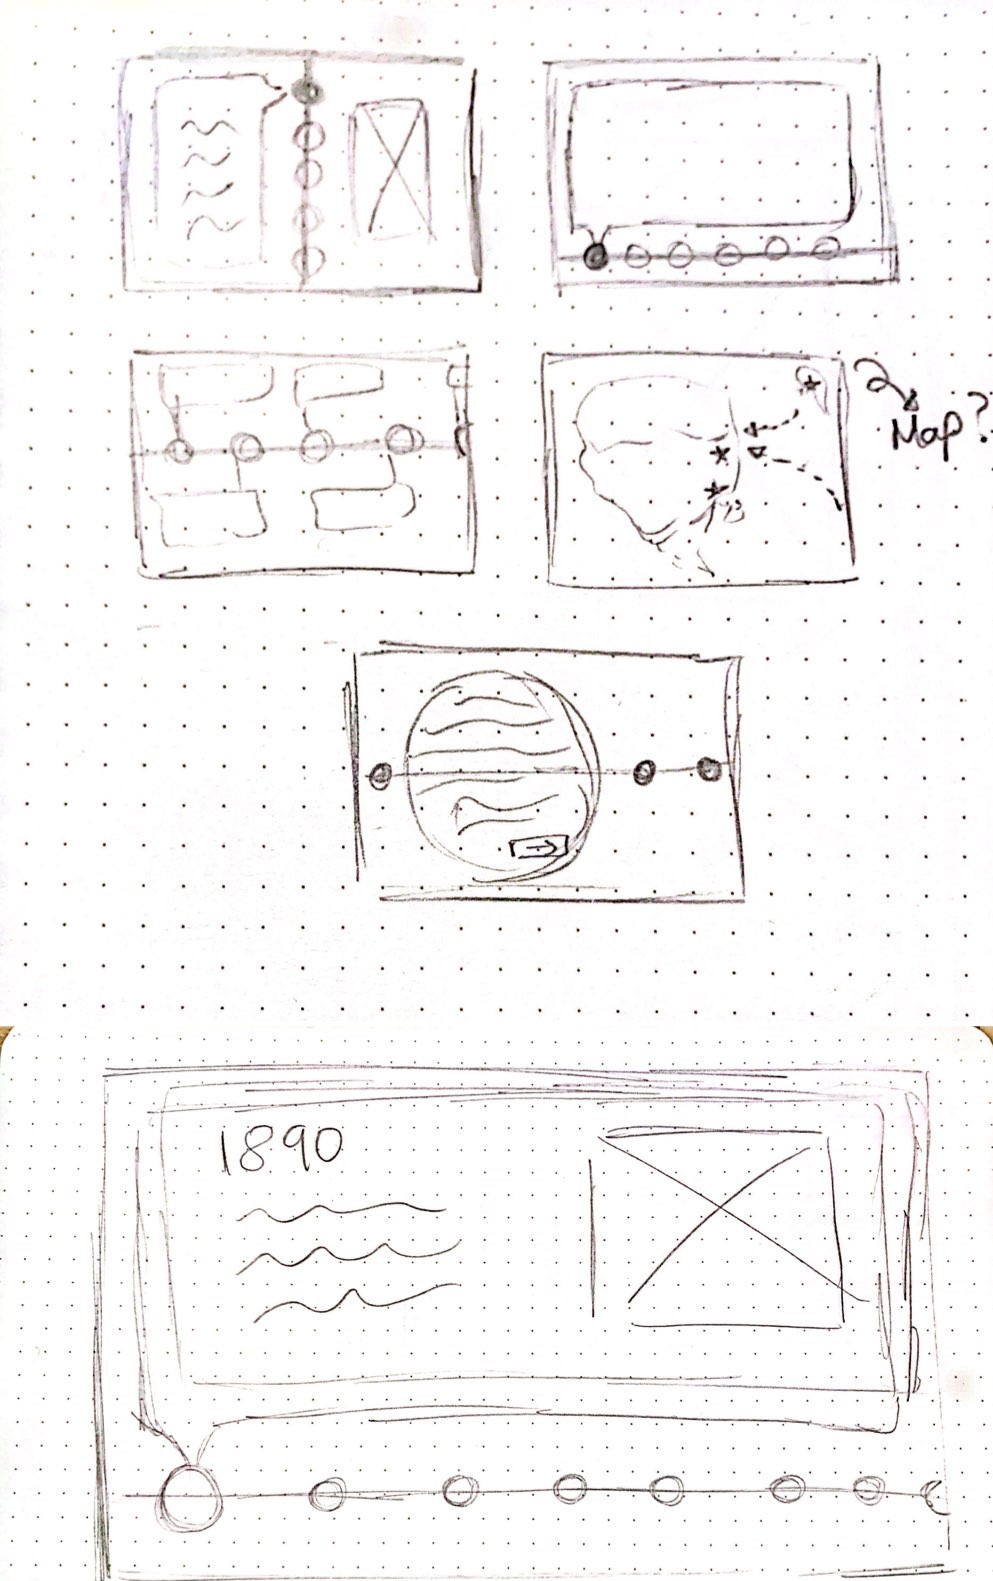 Map?
1890